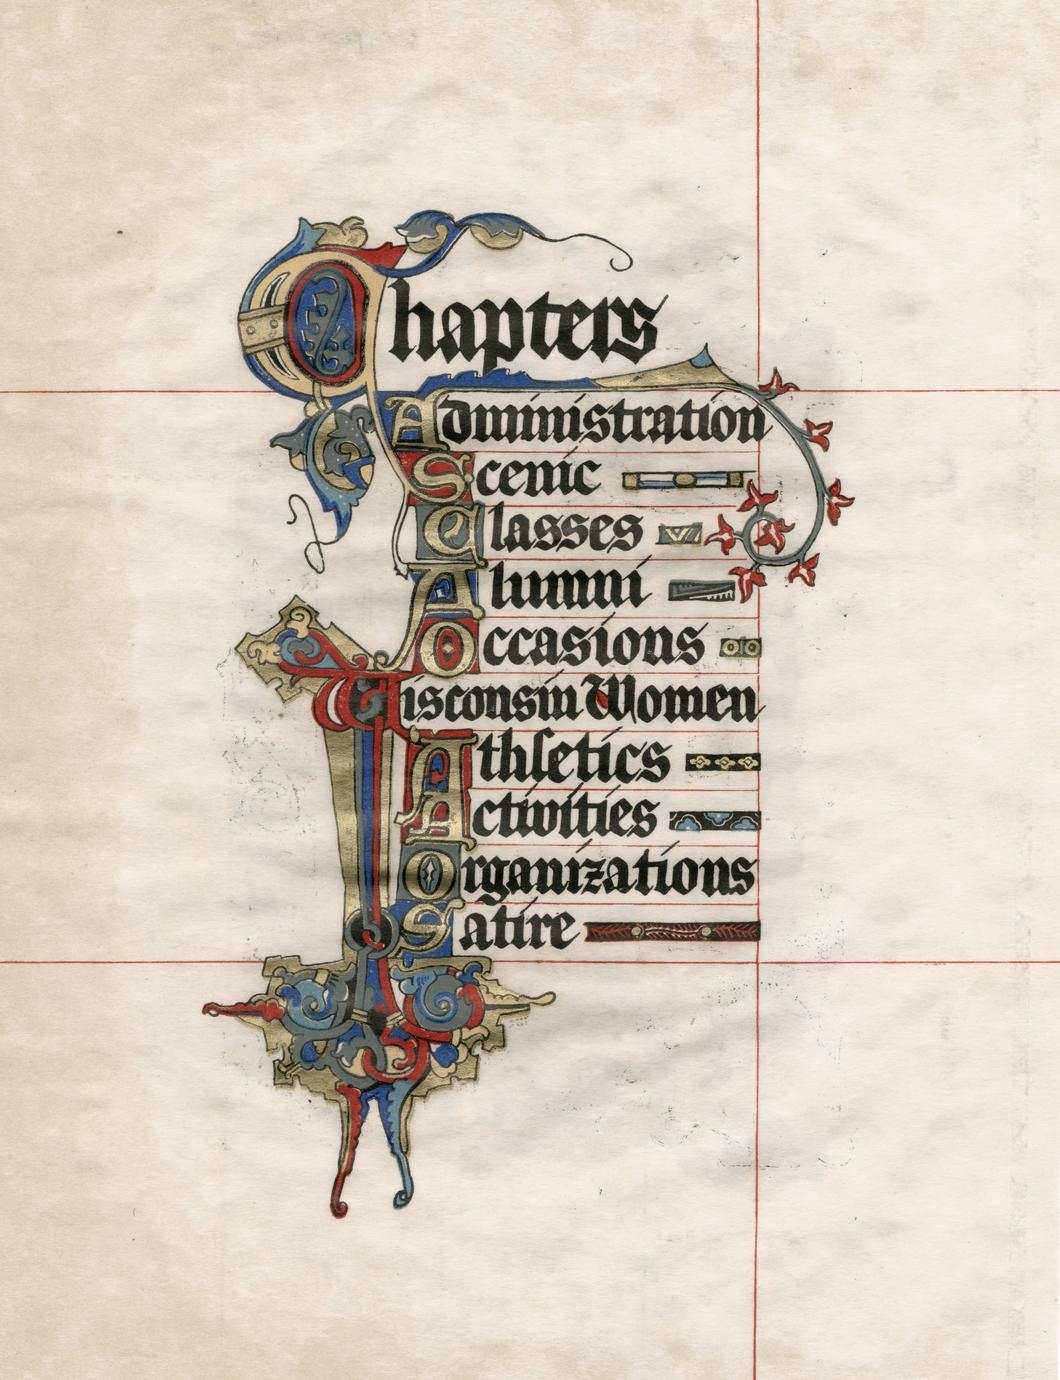 Chapters
Administration
Scenic
Classes
Alumni
Occasions
Wisconsin Women
Athletics
Activities
Organizations
Satire